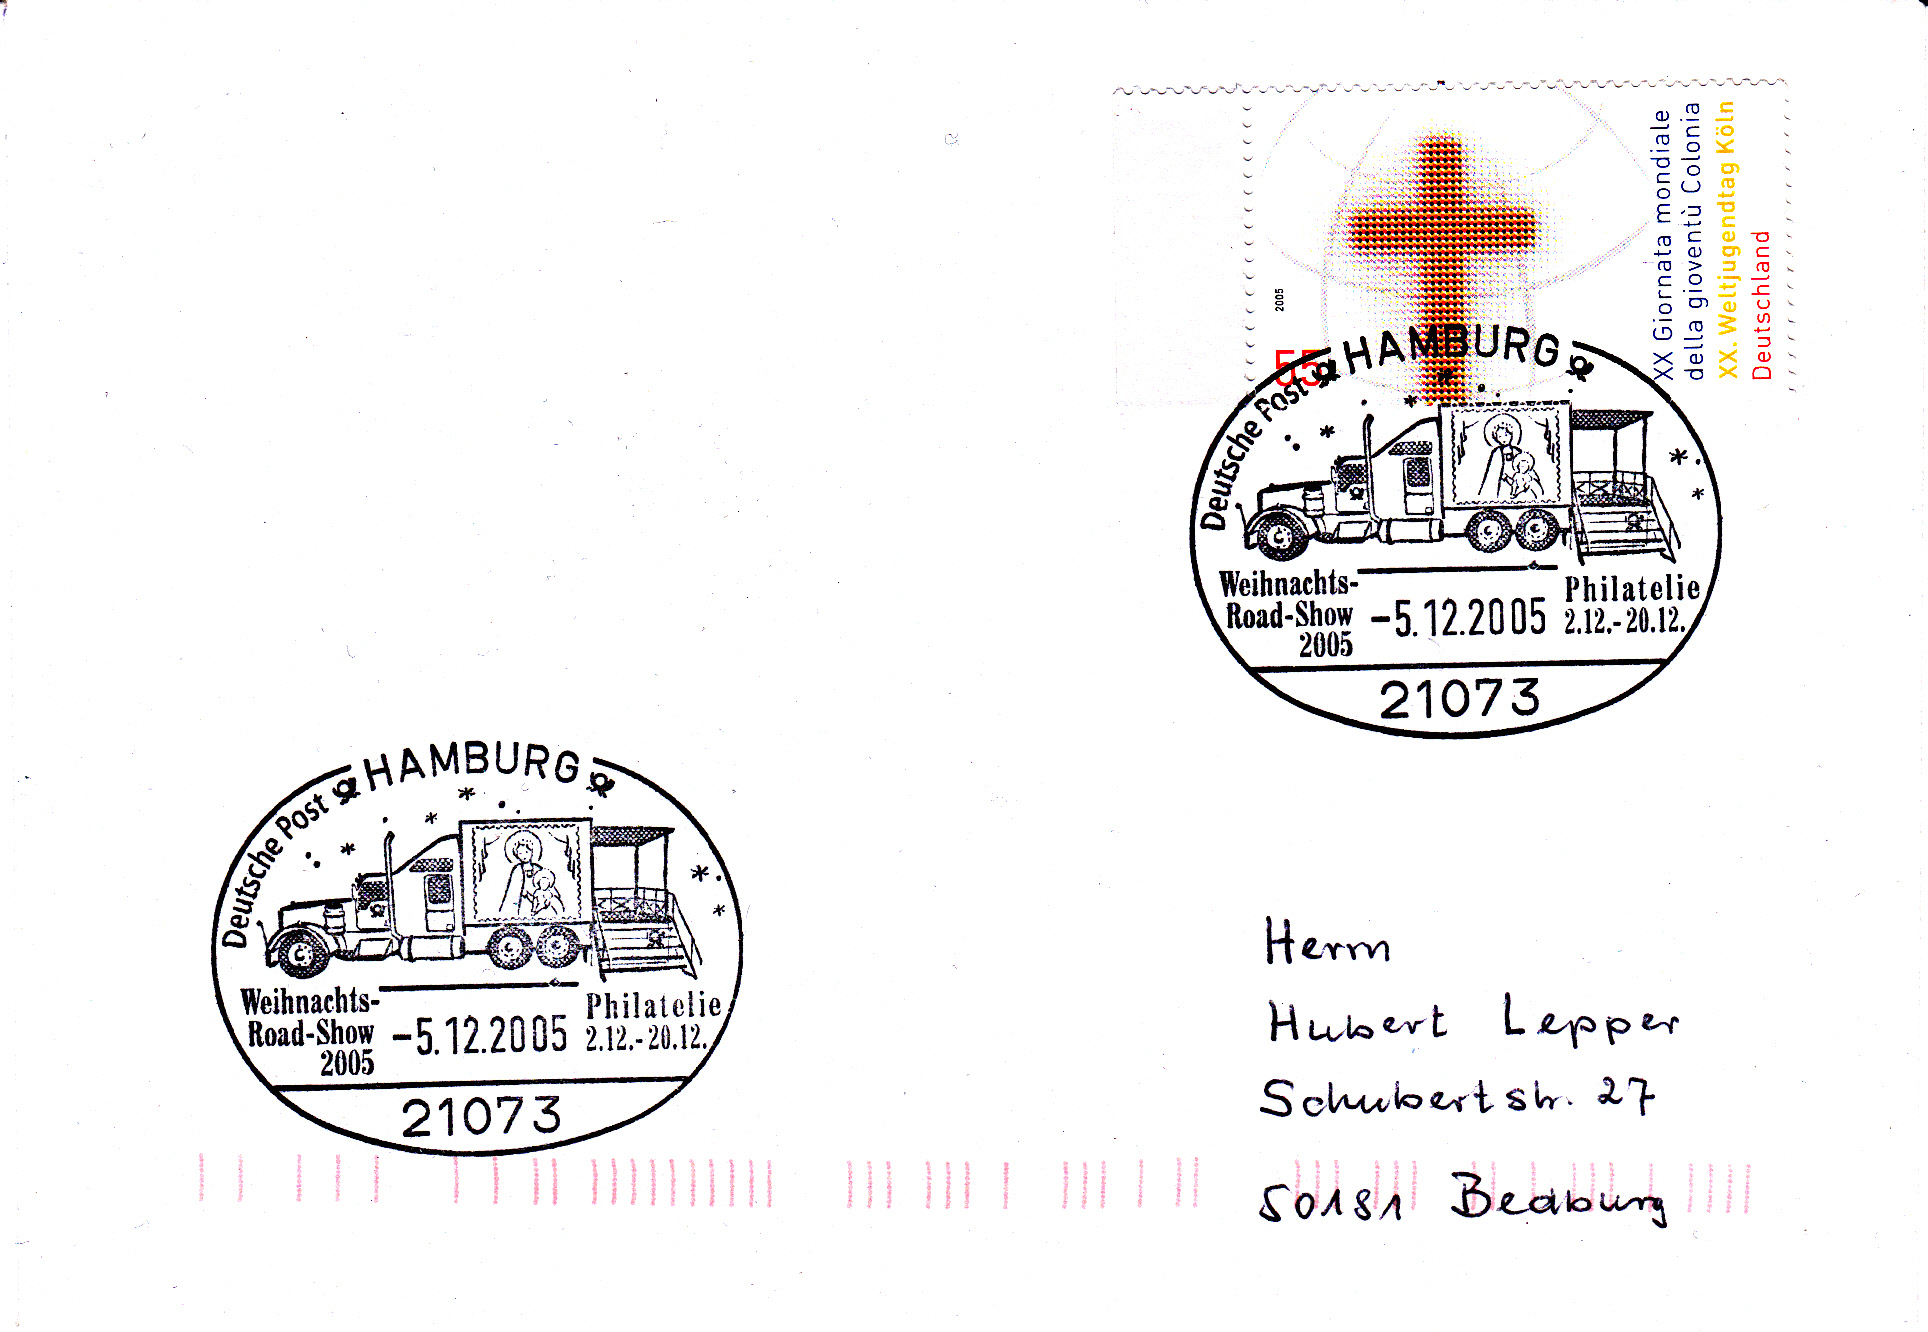 XX Giornata mondiale
della gioventù Colonia
XX. Weltjugendtag Köln
Deutschland
2005
55
Deutsche Post HAMBURG
Weihnachts-
Road-Show
2005
-5.12.2005
Philatelie
2.12.-20.12.
21073
Deutsche Post HAMBURG
Weihnachts-
Road-Show
2005
-5.12.2005
Philatelie
2.12.-20.12.
21073
Herrn
Hubert Lepper
Schubertstr. 27
50181 Bedburg